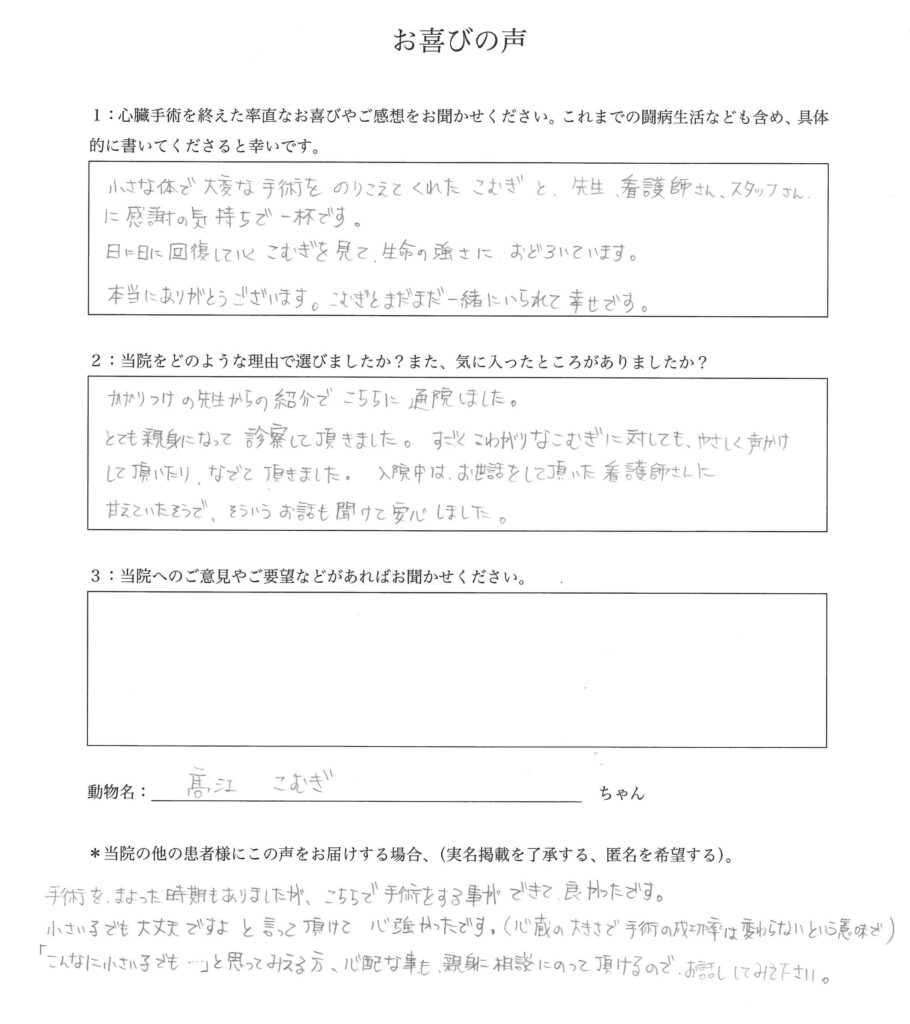 お喜びの声
1：心臓手術を終えた率直なお喜びやご感想をお聞かせください。これまでの闘病生活なども含め、具体
的に書いてくださると幸いです。
小さな体で大変な手術をのりこえてくれたこむぎと、先生、看護師さん、スタッフさん
に感謝の気持ちで一杯です。
日に日に回復していくこむぎを見て、生命の強さにおどろいています。
本当にありがとうございます。こむぎとまだまだ一緒にいられて幸せです。
2：当院をどのような理由で選びましたか？また、気に入ったところがありましたか？
かかりつけの先生からの紹介でこちらに通院しました。
とても親身になって診察して頂きました。すごくこわがりなこむぎに対しても、やさしく声かけ
して頂いたり、なでて頂きました。入院中は、お世話をして頂いた看護師さんに
甘えていたそうで、そういうお話も聞けて安心しました。
3：当院へのご意見やご要望などがあればお聞かせください。
動物名：髙江 こむぎ ちゃん
＊当院の他の患者様にこの声をお届けする場合、（実名掲載を了承する、匿名を希望する）。
手術を、まよった時期もありましたが、こちらで手術をする事ができて、良かったです。
小さい子でも大丈夫ですよと言って頂けて心強かったです。（心蔵の大きさで手術の成功率は変わらないという意味で）
「こんなに小さい子でも…」と思ってみえる方、心配な事も、親身に相談にのって頂けるので、お話ししてみて下さい。